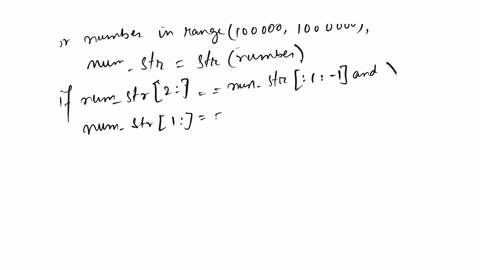 number in range(100000, 1000000),
num_str = str(number)
if num_str[2:] == num_str[:1:-1] and \
num_str[1:] = =